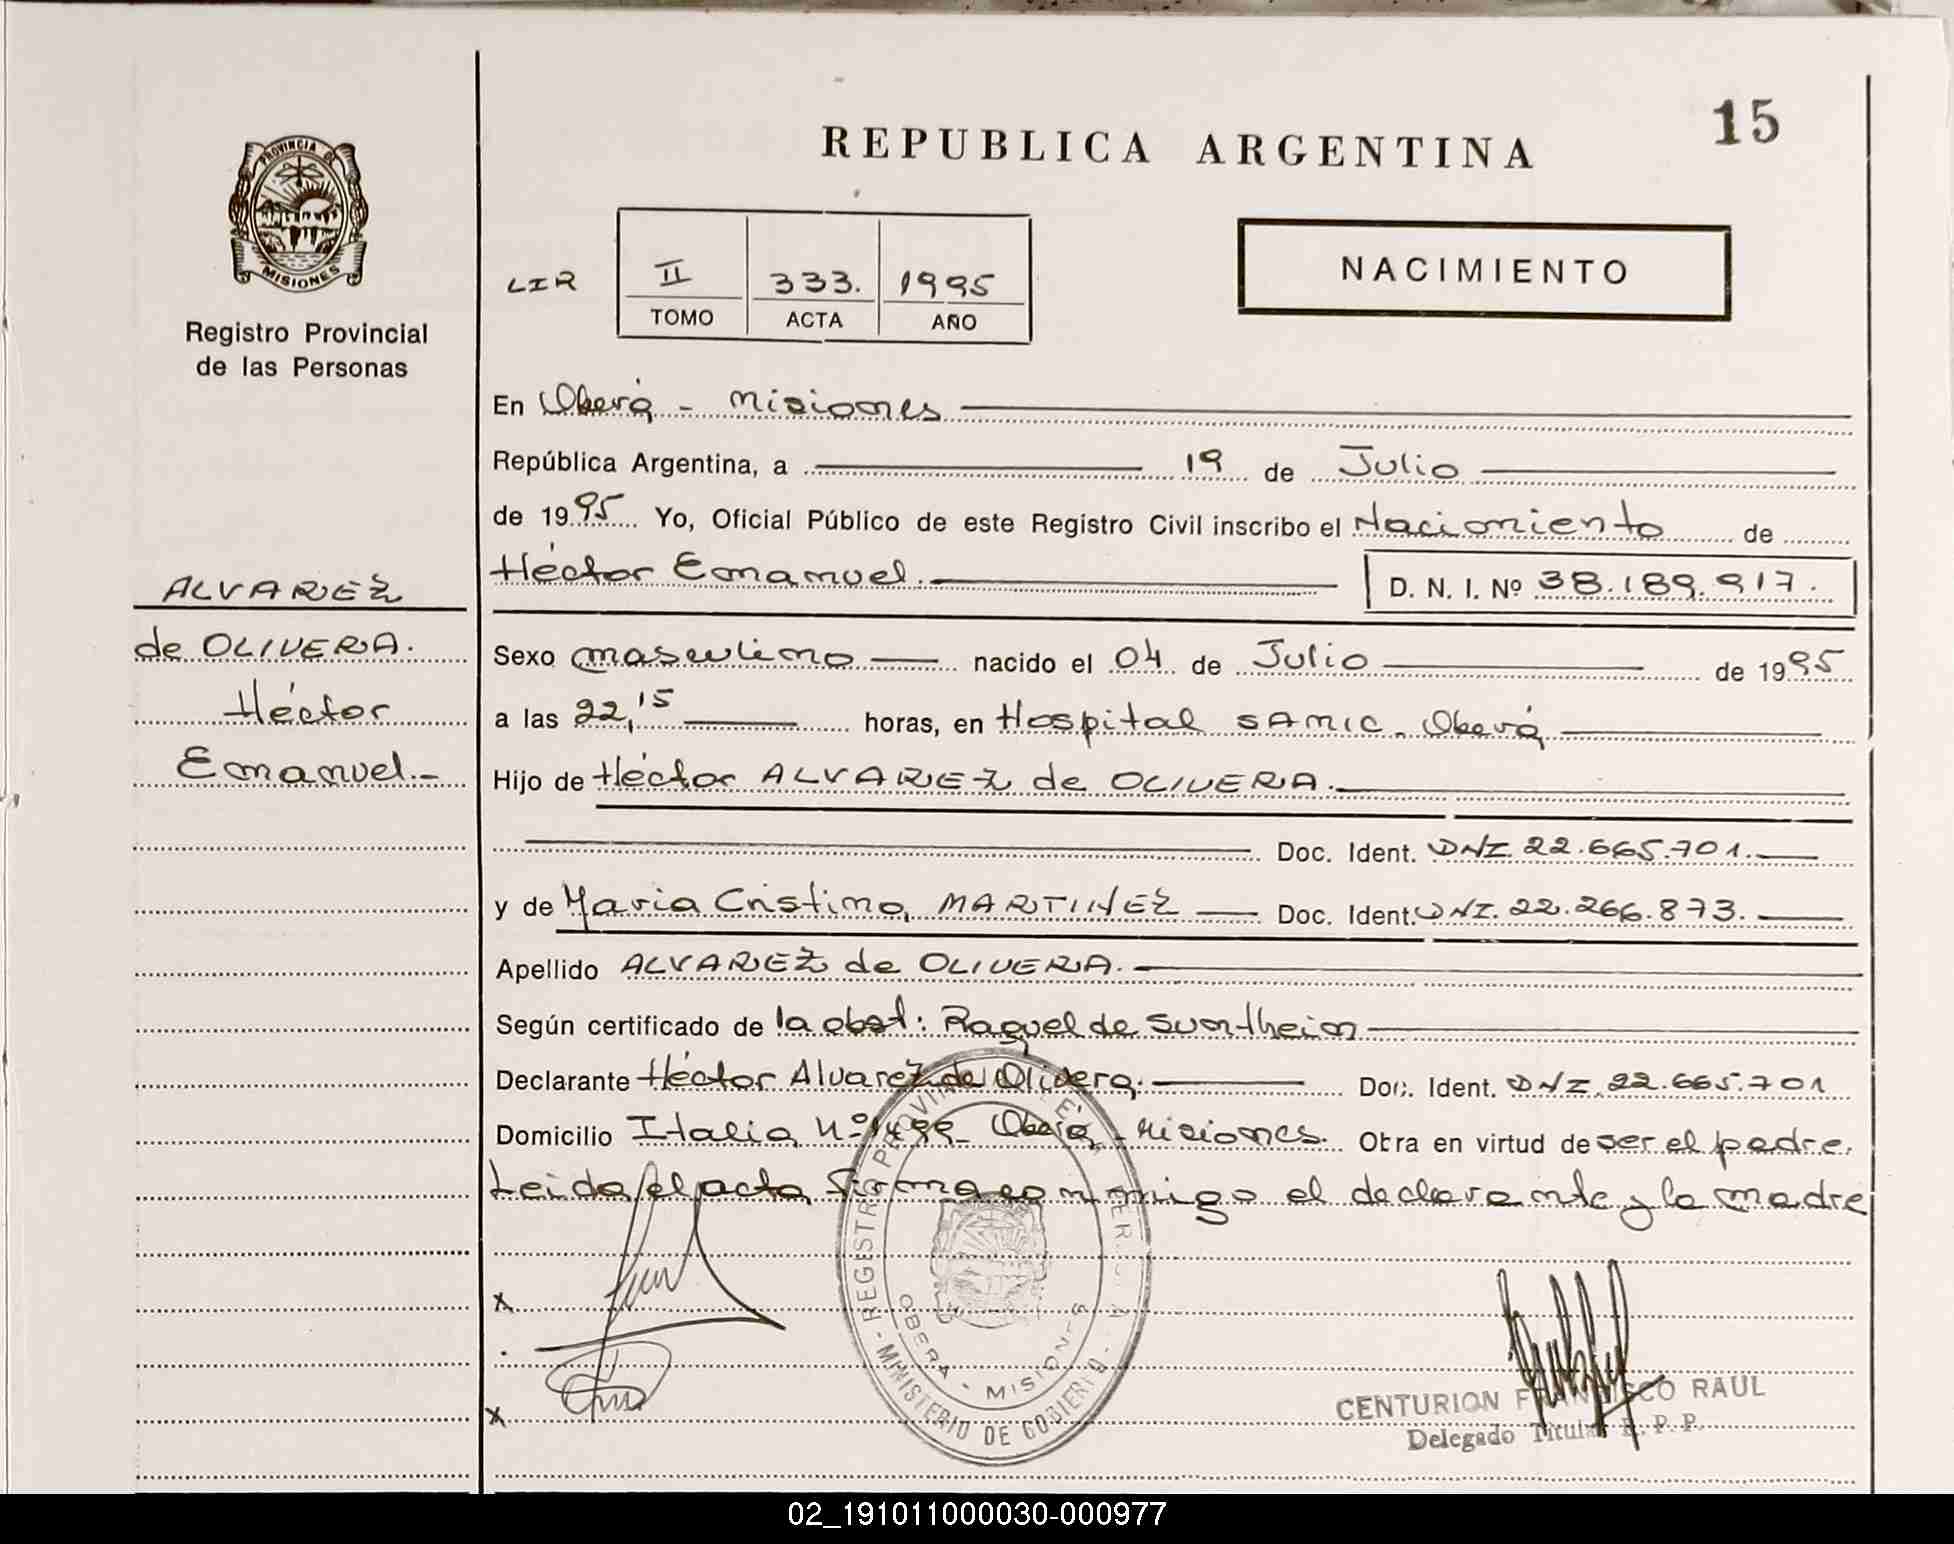 15
REPUBLICA ARGENTINA
PROVINCIA DE
MISIONES
Registro Provincial
de las Personas
LIR
II 333. 1995
TOMO ACTA AÑO
NACIMIENTO
En Oberá - Misiones
República Argentina, a 19 de Julio
de 1995 Yo, Oficial Público de este Registro Civil inscribo el Nacimiento de
Héctor Emanuel. D. N. I. Nº 38.189.917.
ALVAREZ
de OLIVERA.
Héctor
Emanuel.-
Sexo masculino nacido el 04 de Julio de 1995
a las 22,15 horas, en Hospital SAMIC. Oberá
Hijo de Héctor ALVAREZ de OLIVERA.
Doc. Ident. DNI 22.665.701.
y de María Cristina, MARTINEZ Doc. Ident. DNI. 22.266.873.
Apellido ALVAREZ de OLIVERA.
Según certificado de la obst: Raquel de Suntheim
Declarante Héctor Alvarez de Olivera. Doc. Ident. DNI 22.665.701
Domicilio Italia Nº Oberá - Misiones. Obra en virtud de ser el padre.
Leida el acta firma conmigo el declarante y la madre
x
x
REGISTRO PROVINCIAL DE LAS PERSONAS
OBERA - MISIONES
MINISTERIO DE GOBIERNO
CENTURION FRANCISCO RAUL
Delegado Titular R. P. P.
02_191011000030-000977